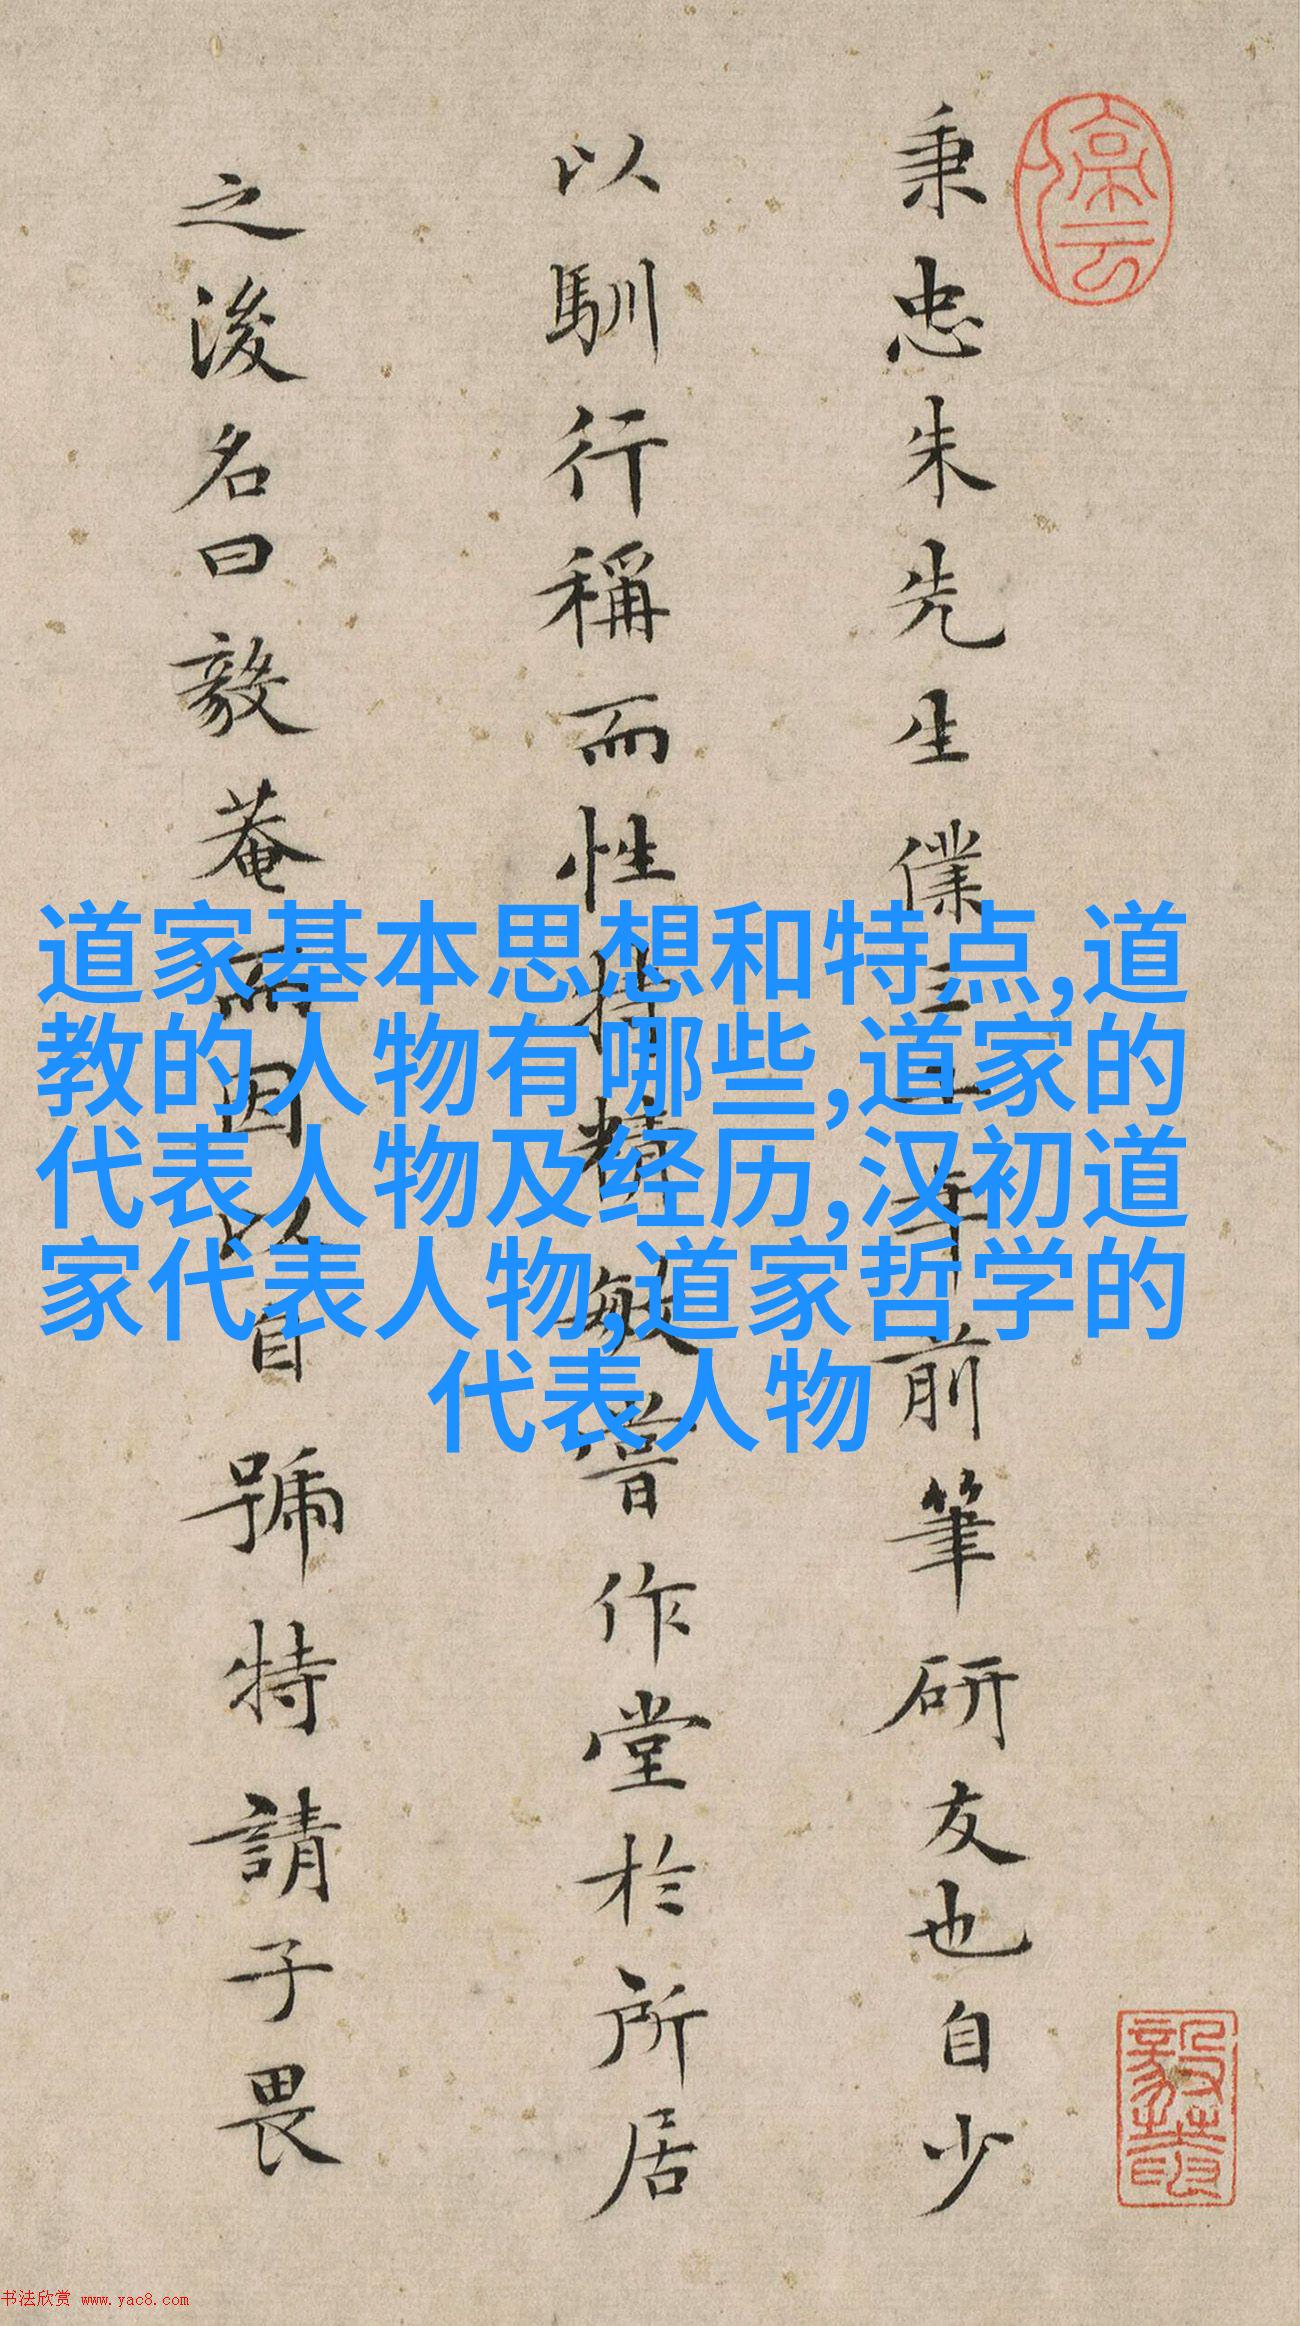 停云
秉忠朱先生僕三十年前筆研友也自少
以馴行稱而性特精敏嘗作堂於所居
之後名曰毅菴而因以自號特請子畏
道家基本思想和特点,道
教的人物有哪些,道家的
代表人物及经历,汉初道
家代表人物,道家哲学的
代表人物
书法欣赏 www.yac8.com